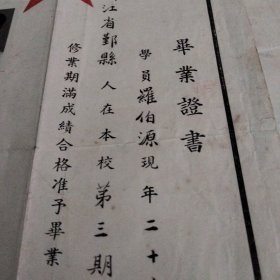 畢業證書
學員羅伯源現年二十
江省鄞縣人在本校第三期
修業期滿成績合格准予畢業